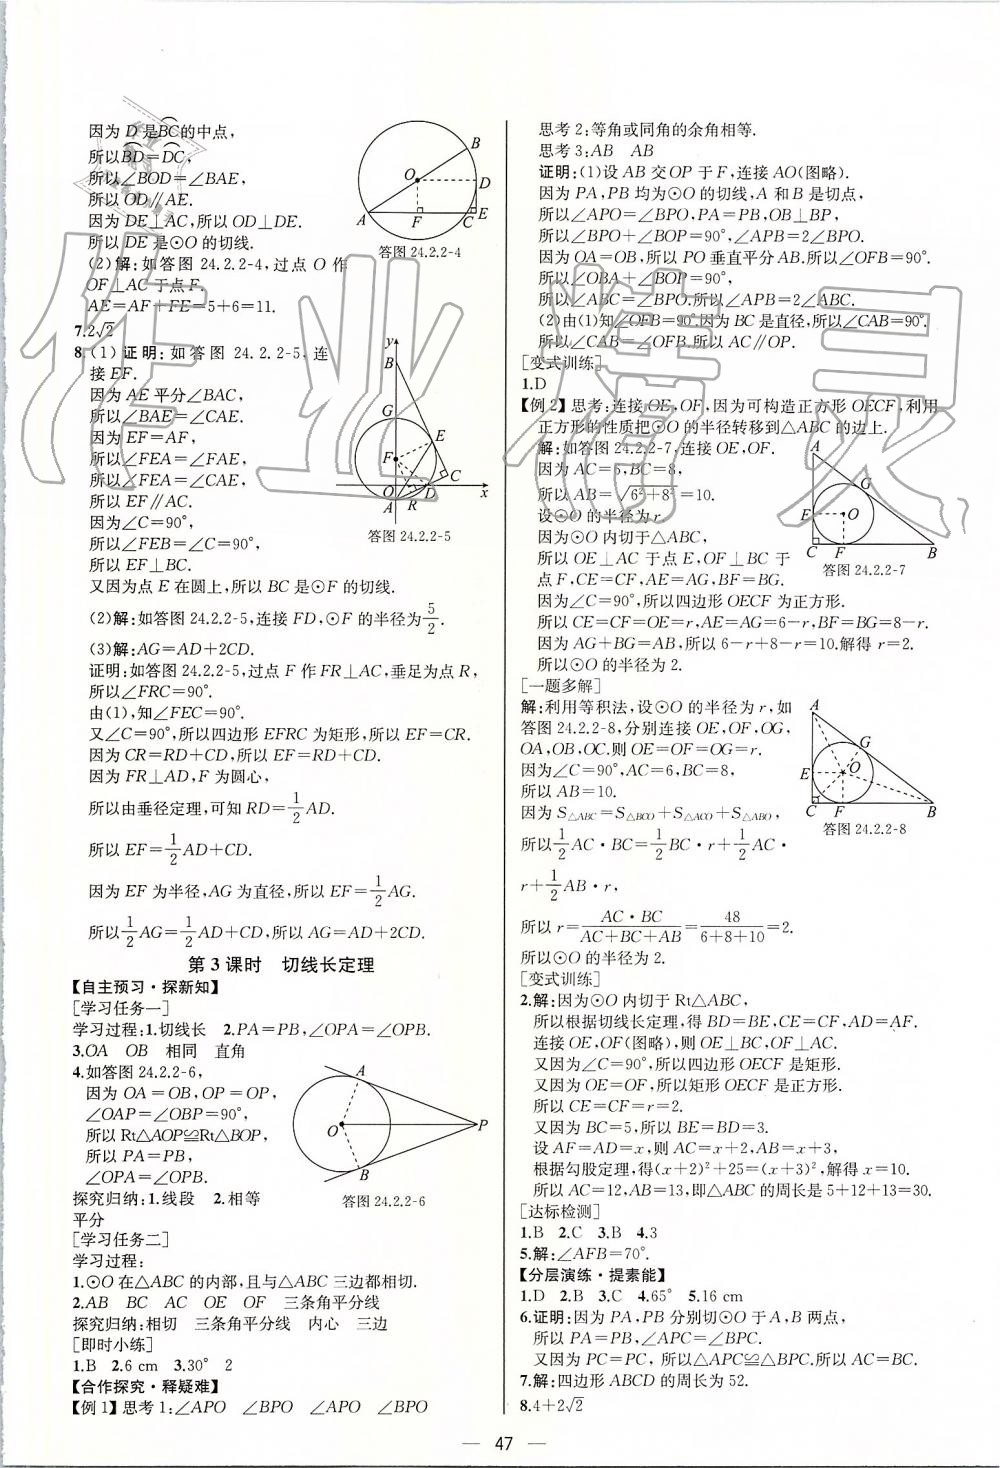 因为 D 是B͡C的中点,
所以B͡D=D͡C,
所以∠BOD=∠BAE,
所以 OD∥AE.
因为 DE⊥AC,所以 OD⊥DE.
所以 DE 是⊙O 的切线.
(2)解:如答图 24.2.2-4,过点 O 作
OF⊥AC 于点 F.
AE=AF+FE=5+6=11.
答图 24.2.2-4
7.2√2
8.(1)证明:如答图 24.2.2-5,连
接 EF.
因为 AE 平分∠BAC,
所以∠BAE=∠CAE.
因为 EF=AF,
所以∠FEA=∠FAE,
所以∠FEA=∠CAE,
所以 EF∥AC.
因为∠C=90°,
所以∠FEB=∠C=90°,
所以 EF⊥BC.
答图 24.2.2-5
又因为点 E 在圆上,所以 BC 是⊙F 的切线.
(2)解:如答图 24.2.2-5,连接 FD,⊙F 的半径为5/2.
(3)解:AG=AD+2CD.
证明:如答图 24.2.2-5,过点 F 作 FR⊥AC,垂足为点 R,
所以∠FRC=90°.
由(1),知∠FEC=90°.
又∠C=90°,所以四边形 EFRC 为矩形,所以 EF=CR.
因为 CR=RD+CD,所以 EF=RD+CD.
因为 FR⊥AD,F 为圆心,
所以由垂径定理,可知 RD=1/2AD.
所以 EF=1/2AD+CD.
因为 EF 为半径,AG 为直径,所以 EF=1/2AG.
所以1/2AG=1/2AD+CD,所以 AG=AD+2CD.
第 3 课时 切线长定理
【自主预习·探新知】
[学习任务一]
学习过程:1.切线长 2.PA=PB,∠OPA=∠OPB.
3.OA OB 相同 直角
4.如答图 24.2.2-6,
因为 OA=OB,OP=OP,
∠OAP=∠OBP=90°,
所以 Rt△AOP≌Rt△BOP,
所以 PA=PB,
∠OPA=∠OPB.
探究归纳:1.线段 2.相等
平分
答图 24.2.2-6
[学习任务二]
学习过程:
1.⊙O 在△ABC 的内部,且与△ABC 三边都相切.
2.AB BC AC OE OF 三条角平分线
探究归纳:相切 三条角平分线 内心 三边
[即时小练]
1.B 2.6 cm 3.30° 2
【合作探究·释疑难】
【例 1】思考 1:∠APO ∠BPO ∠APO ∠BPO
思考 2:等角或同角的余角相等.
思考 3:AB AB
证明:(1)设 AB 交 OP 于 F,连接 AO(图略).
因为 PA,PB 均为⊙O 的切线,A 和 B 是切点,
所以∠APO=∠BPO,PA=PB,OB⊥BP,
所以∠BPO+∠BOP=90°,∠APB=2∠BPO.
因为 OA=OB,所以 PO 垂直平分 AB.所以∠OFB=90°.
所以∠OBA+∠BOP=90°,
所以∠ABC=∠BPO.所以∠APB=2∠ABC.
(2)由(1)知∠OFB=90°.因为 BC 是直径,所以∠CAB=90°.
所以∠CAB=∠OFB.所以 AC∥OP.
[变式训练]
1.D
【例 2】思考:连接 OE,OF,因为可构造正方形 OECF,利用
正方形的性质把⊙O 的半径转移到△ABC 的边上.
解:如答图 24.2.2-7,连接 OE,OF.
因为 AC=6,BC=8,
所以 AB=√6²+8²=10.
设⊙O 的半径为 r.
因为⊙O 内切于△ABC,
所以 OE⊥AC 于点 E,OF⊥BC 于
点 F,CE=CF,AE=AG,BF=BG.
答图 24.2.2-7
因为∠C=90°,所以四边形 OECF 为正方形.
所以 CE=CF=OE=r,AE=AG=6-r,BF=BG=8-r.
因为 AG+BG=AB,所以 6-r+8-r=10.解得 r=2.
所以⊙O 的半径为 2.
[一题多解]
解:利用等积法,设⊙O 的半径为 r,如
答图 24.2.2-8,分别连接 OE,OF,OG,
OA,OB,OC.则 OE=OF=OG=r.
因为∠C=90°,AC=6,BC=8,
所以 AB=10.
因为 S△ABC=S△BCO+S△ACO+S△ABO,
答图 24.2.2-8
所以1/2AC·BC=1/2BC·r+1/2AC·
r+1/2AB·r,
所以 r=AC·BC/AC+BC+AB=48/6+8+10=2.
所以⊙O 的半径为 2.
[变式训练]
2.解:因为⊙O 内切于 Rt△ABC,
所以根据切线长定理,得 BD=BE,CE=CF,AD=AF.
连接 OE,OF(图略),则 OE⊥BC,OF⊥AC.
又因为∠C=90°,所以四边形 OECF 是矩形.
又因为 OE=OF,所以矩形 OECF 是正方形.
所以 CE=CF=r=2.
又因为 BC=5,所以 BE=BD=3.
设 AF=AD=x,则 AC=x+2,AB=x+3,
根据勾股定理,得(x+2)²+25=(x+3)²,解得 x=10.
所以 AC=12,AB=13,即△ABC 的周长是 5+12+13=30.
[达标检测]
1.B 2.C 3.B 4.3
5.解:∠AFB=70°.
【分层演练·提素能】
1.D 2.B 3.C 4.65° 5.16 cm
6.证明:因为 PA,PB 分别切⊙O 于 A,B 两点,
所以 PA=PB,∠APC=∠BPC.
又因为 PC=PC,所以△APC≌△BPC.所以 AC=BC.
7.解:四边形 ABCD 的周长为 52.
8.4+2√2
— 47 —
作业精灵